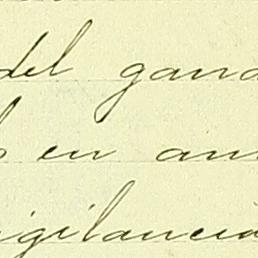 del gana
en am
igilancia